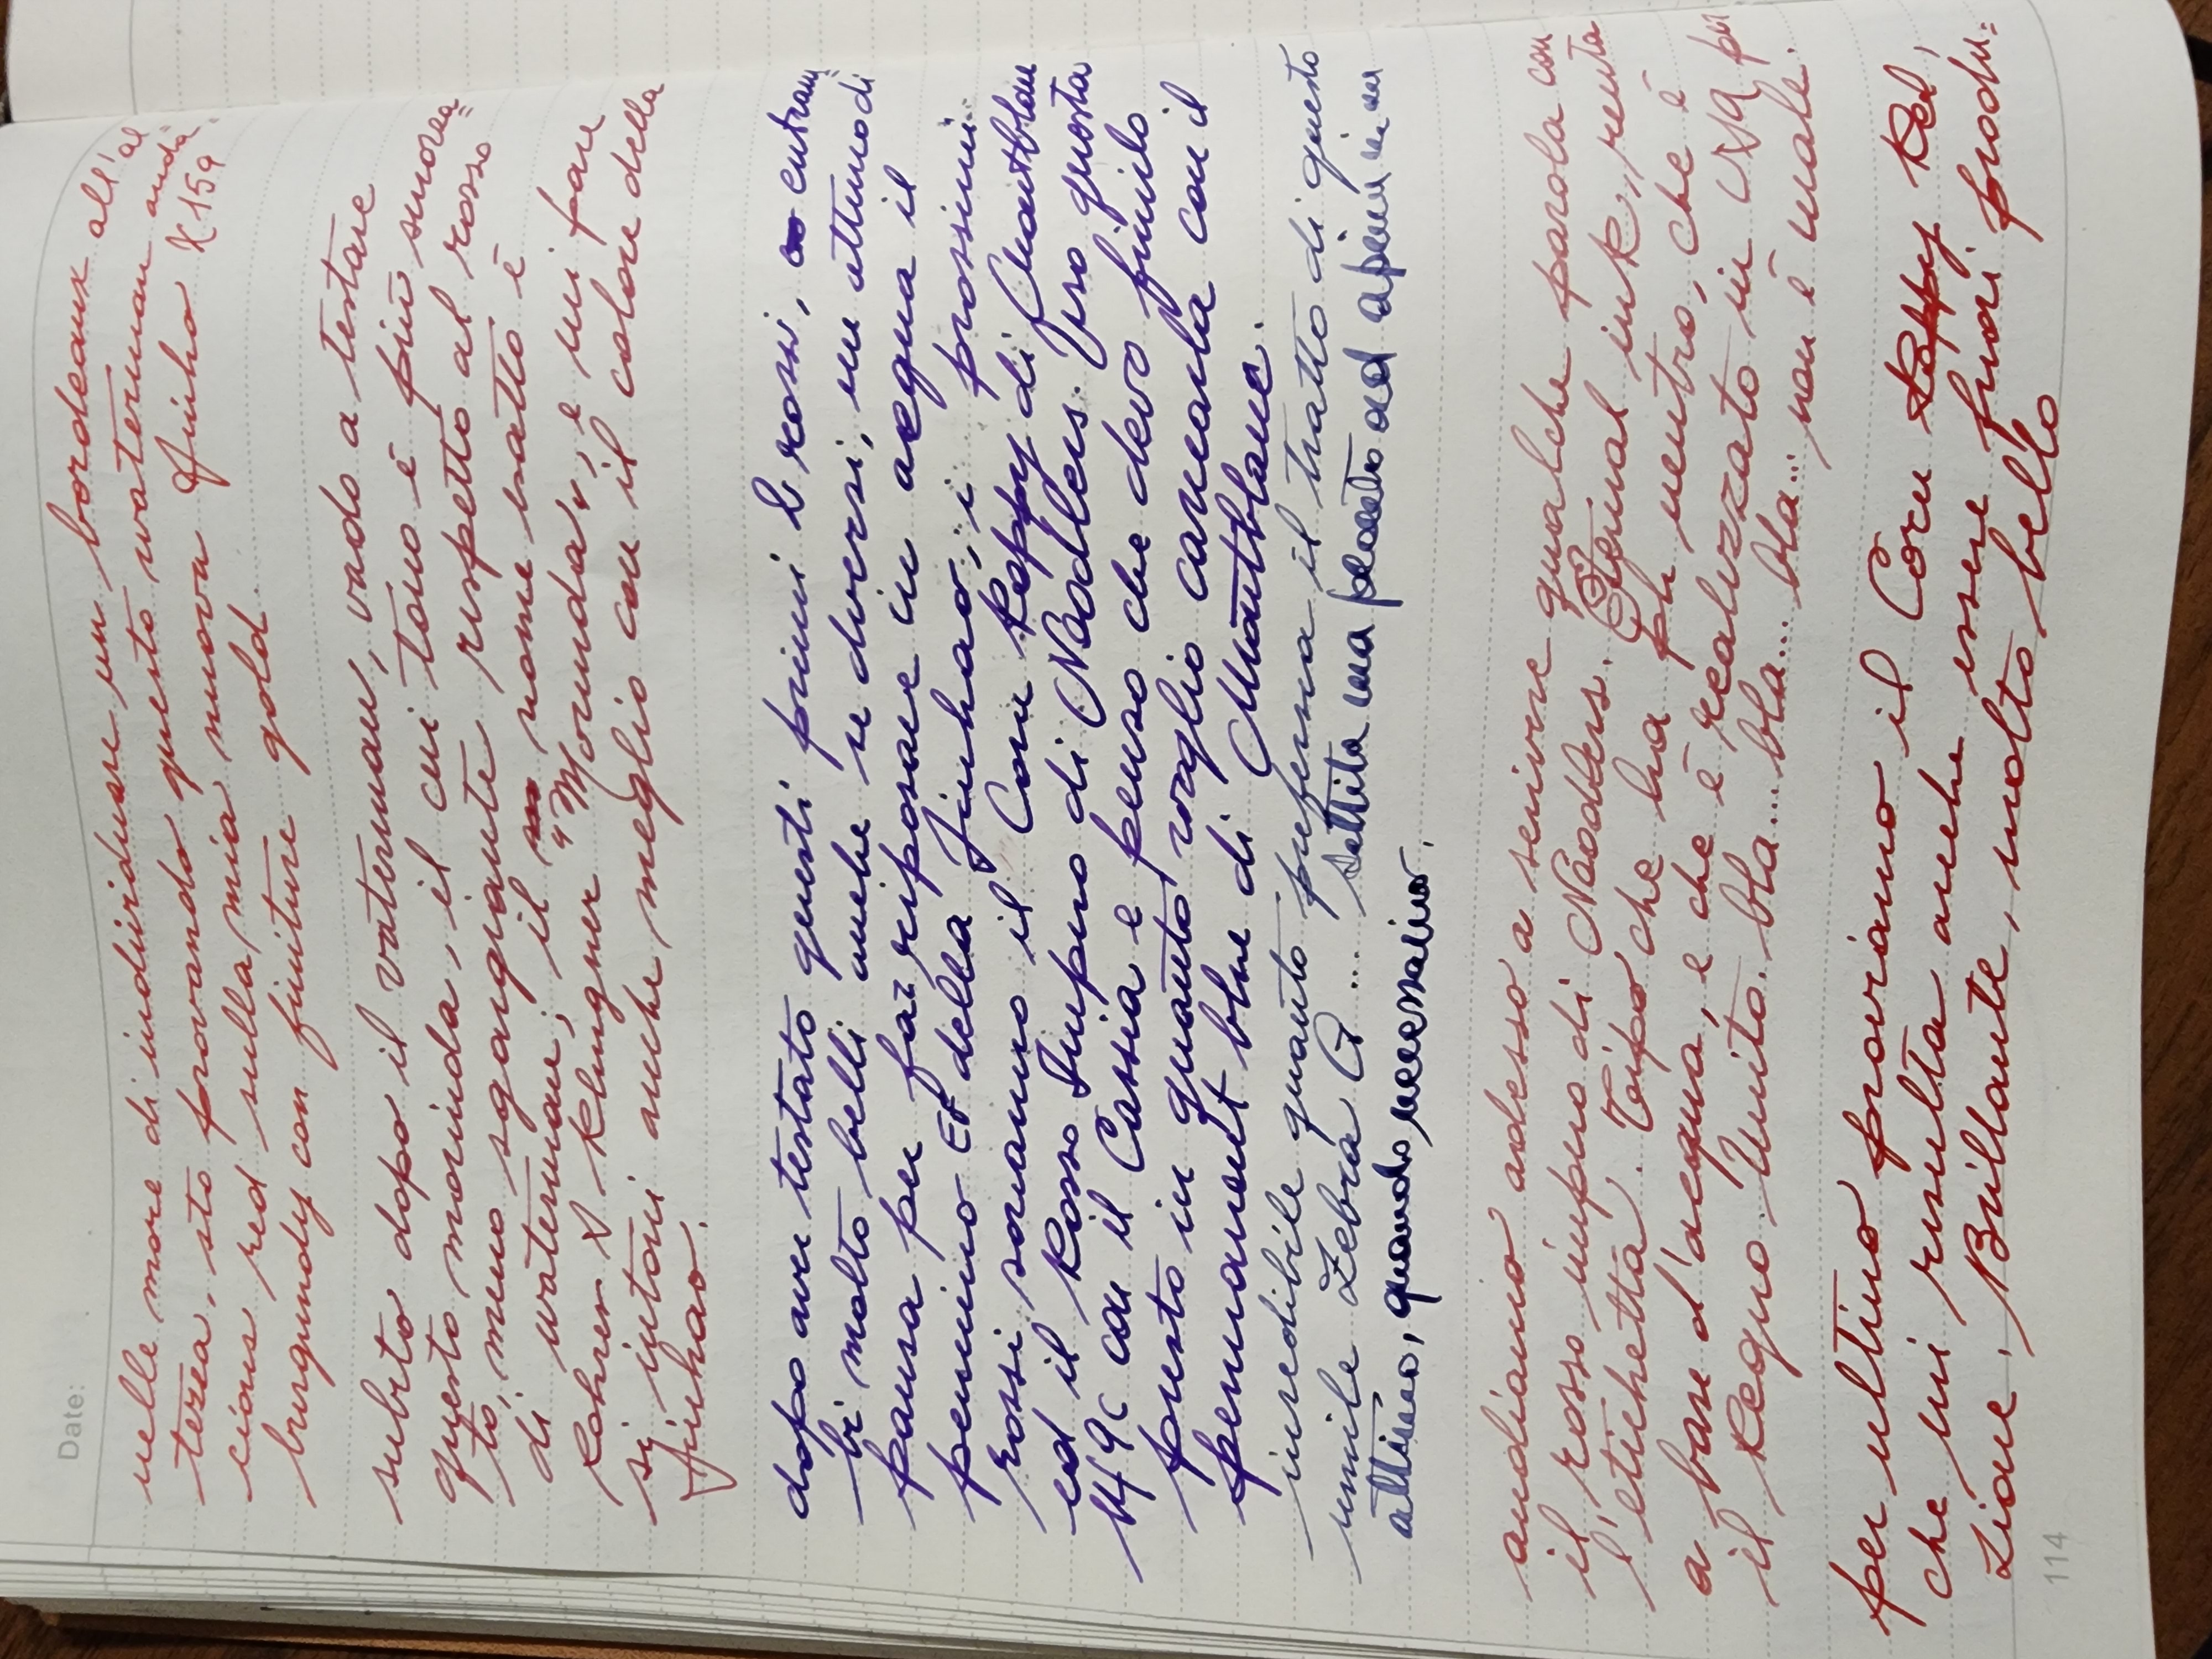 Date:
nelle more di individuare un bordeaux all'al
tezza, sto provando questo waterman auda
cious red sulla mia nuova Jinhao X159
burgundy con finiture gold
subito dopo il waterman, vado a testare
questo morinda, il cui tono è più smorza=
to, meno sgargiante rispetto al rosso
di waterman; il nome esatto è
Rohrer & Klingner "Morinda", e mi pare
si intoni anche meglio con il colore della
Jinhao.
dopo aver testato questi primi 2 rossi, entram
bi molto belli anche se diversi, un attimo di
pausa per far riposare in acqua il
pennino EF della Jinhao; i prossimi
rossi saranno il Corn Poppy di Montblanc
ed il Rosso Impuro di Noodlers. Uso questa
149C con il Cassia e penso che devo finirlo
presto in quanto voglio caricarla con il
permanent blue di Montblanc.
incredibile quanto preferisca il tratto di questo
umile Zebra G ... sottita ma ad aprirsi un
attimo, quando necessario.
andiamo adesso a scrivere qualche parola con
il rosso impuro di Noodlers. Eternal ink, recita
l'etichetta. Tipo che ha ph neutro, che è
a base d'acqua, e che è realizzato in USA per
il Regno Unito. bla... bla... bla... non è male.
per ultimo proviamo il Corn Poppy Red,
che mi risulta anche essere fuori produ=
zione. Brillante, molto bello
114